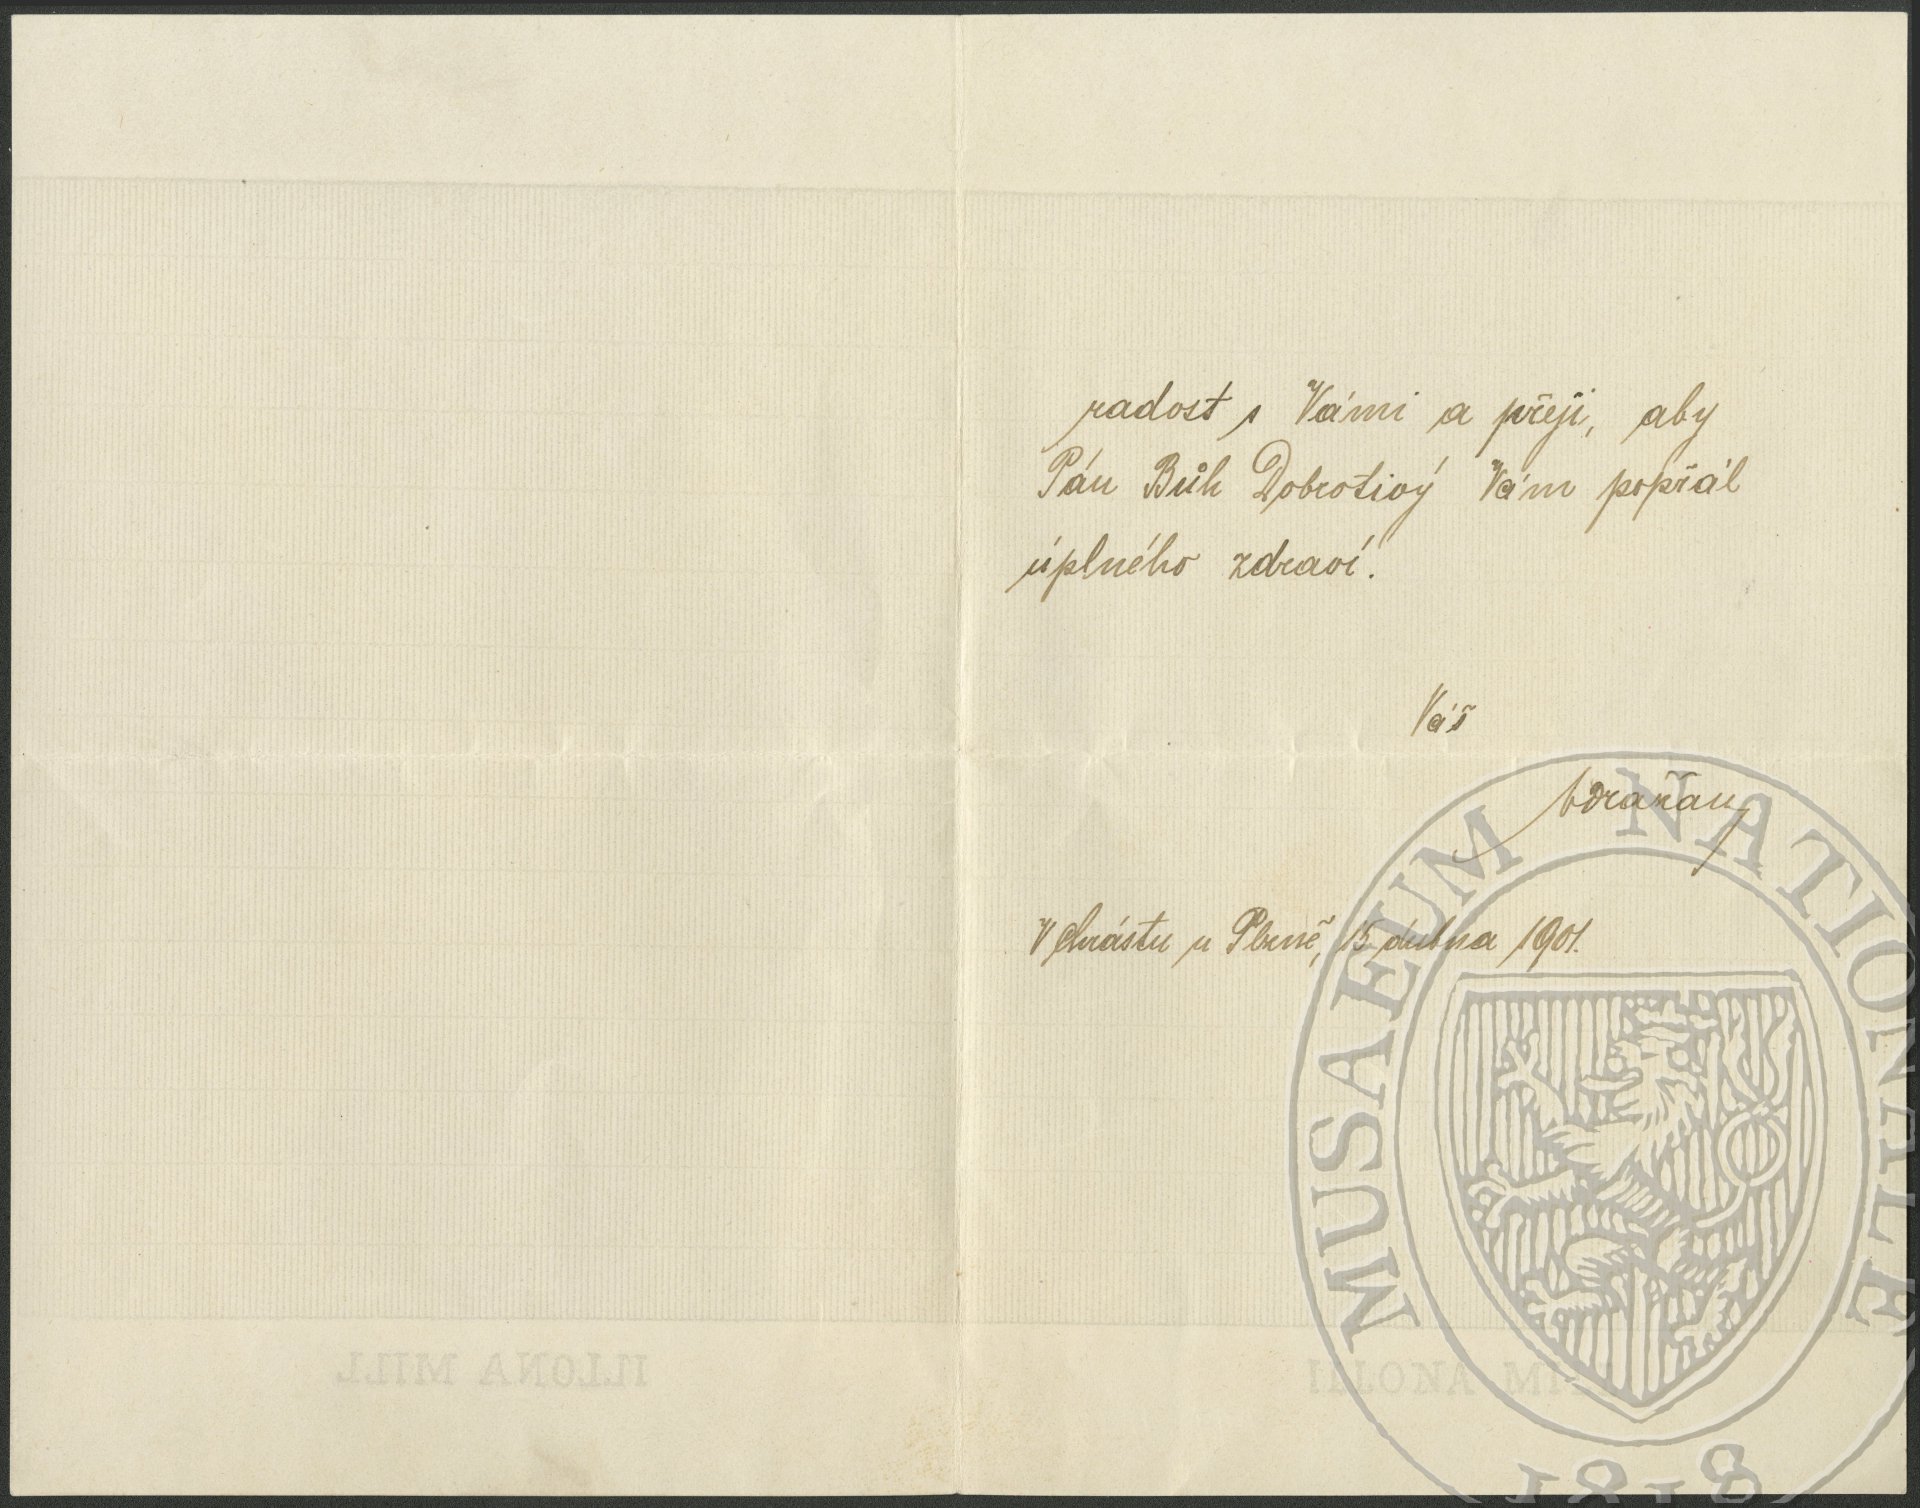 radost s Vámi a přeji, aby
Pán Bůh Dobrotivý Vám popřál
úplného zdraví.
Váš
V Chrástu u Plzně, 15 dubna 1901.
ILLONA MILL
ILLONA MILL
MUSAEUM NATIONALE
1818